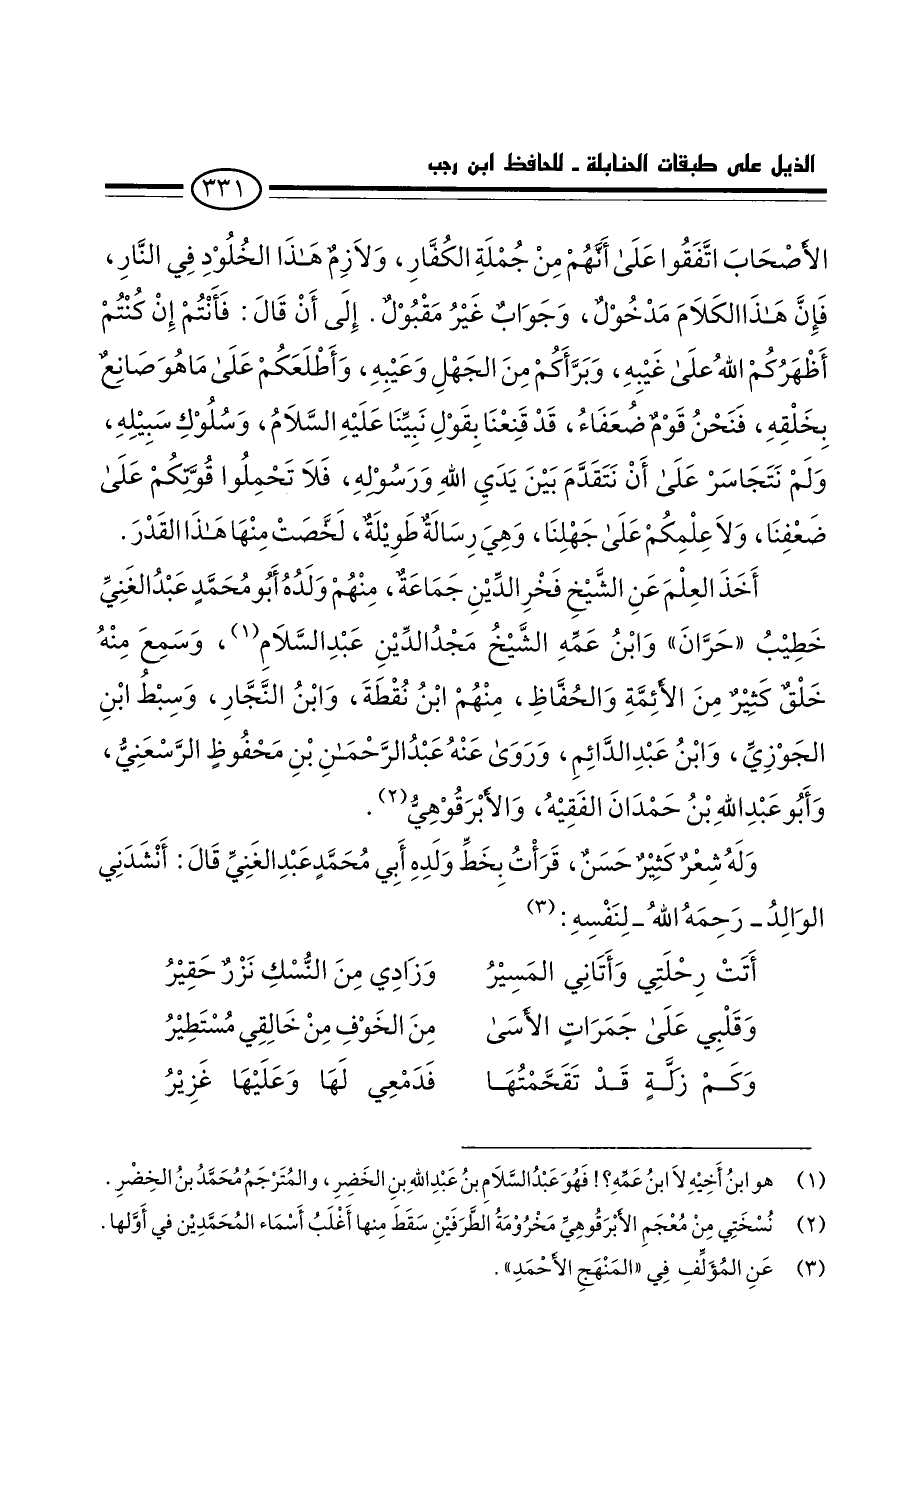 الذيل على طبقات الحنابلة ـ للحافظ ابن رجب
٣٣١
الأَصْحَابَ اتَّفَقُوا عَلَىٰ أَنَّهُمْ مِنْ جُمْلَةِ الكُفَّارِ، وَلاَزِمٌ هَـٰذَا الخُلُوْدِ فِي النَّارِ،
فَإِنَّ هَـٰذَا الكَلَامَ مَدْخُوْلٌ، وَجَوَابٌ غَيْرُ مَقْبُوْلٌ. إِلَى أَنْ قَالَ: فَأَنْتُمْ إِنْ كُنْتُمْ
أَظْهَرُكُمْ اللهُ عَلَىٰ غَيْبِهِ، وَبَرَّأَكُمْ مِنَ الجَهْلِ وَعَيْبِهِ، وَأَطْلَعَكُمْ عَلَىٰ مَا هُوَ صَانِعٌ
بِخَلْقِهِ، فَنَحْنُ قَوْمٌ ضُعَفَاءُ، قَدْ قَنِعْنَا بِقَوْلِ نَبِيِّنَا عَلَيْهِ السَّلَامُ، وَسُلُوْكِ سَبِيْلِهِ،
وَلَمْ نَتَجَاسَرْ عَلَىٰ أَنْ نَتَقَدَّمَ بَيْنَ يَدَيِ اللهِ وَرَسُوْلِهِ، فَلَا تَحْمِلُوا قُوَّتِكُمْ عَلَىٰ
ضَعْفِنَا، وَلاَ عِلْمِكُمْ عَلَىٰ جَهْلِنَا، وَهِيَ رِسَالَةٌ طَوِيْلَةٌ، لَخَّصَتْ مِنْهَا هَـٰذَا القَدْرَ.
أَخَذَ العِلْمَ عَنِ الشَّيْخِ فَخْرِ الدِّيْنِ جَمَاعَةٌ، مِنْهُمْ وَلَدُهُ أَبُو مُحَمَّدٍ عَبْدُ الغَنِيِّ
خَطِيْبُ «حَرَّانَ» وَابْنُ عَمِّهِ الشَّيْخُ مَجْدُ الدِّيْنِ عَبْدِ السَّلَامِ(١)، وَسَمِعَ مِنْهُ
خَلْقٌ كَثِيْرٌ مِنَ الأَئِمَّةِ وَالحُفَّاظِ، مِنْهُمْ ابْنُ نُقْطَةَ، وَابْنُ النَّجَّارِ، وَسِبْطُ ابْنِ
الجَوْزِيِّ، وَابْنُ عَبْدِ الدَّائِمِ، وَرَوَىٰ عَنْهُ عَبْدُ الرَّحْمَـٰنِ بْنِ مَحْفُوظٍ الرَّسْعَنِيُّ،
وَأَبُو عَبْدِ اللهِ بْنُ حَمْدَانَ الفَقِيْهُ، وَالأَبْرَقُوْهِيُّ(٢).
وَلَهُ شِعْرٌ كَثِيْرٌ حَسَنٌ، قَرَأْتُ بِخَطِّ وَلَدِهِ أَبِي مُحَمَّدٍ عَبْدِ الغَنِيِّ قَالَ: أَنْشَدَنِي
الوَالِدُ ـ رَحِمَهُ اللهُ ـ لِنَفْسِهِ:(٣)
أَتَتْ رِحْلَتِي وَأَتَانِي المَسِيْرُ وَزَادِي مِنَ النُّسْكِ نَزْرٌ حَقِيْرُ
وَقَلْبِي عَلَىٰ جَمَرَاتٍ الأَسَىٰ مِنَ الخَوْفِ مِنْ خَالِقِي مُسْتَطِيْرُ
وَكَمْ زَلَّةٍ قَدْ تَقَحَّمْتُهَا فَدَمْعِي لَهَا وَعَلَيْهَا غَزِيْرُ
(١) هو ابنُ أَخِيْهِ لاَ ابنُ عَمِّهِ؟! فَهُوَ عَبْدُ السَّلَامِ بنُ عَبْدِ اللهِ بنِ الخَضِرِ، والمُتَرْجَمُ مُحَمَّدُ بنُ الخِضْرِ.
(٢) نُسْخَتِي مِنْ مُعْجَمِ الأَبْرَقُوهِيِّ مَخْرُوْمَةُ الطَّرَفَيْنِ سَقَطَ مِنها أَغْلَبُ أَسْمَاء المُحَمَّدِيْن في أَوَّلها.
(٣) عَنِ المُؤَلِّفِ فِي «المَنْهَجِ الأَحْمَدِ».